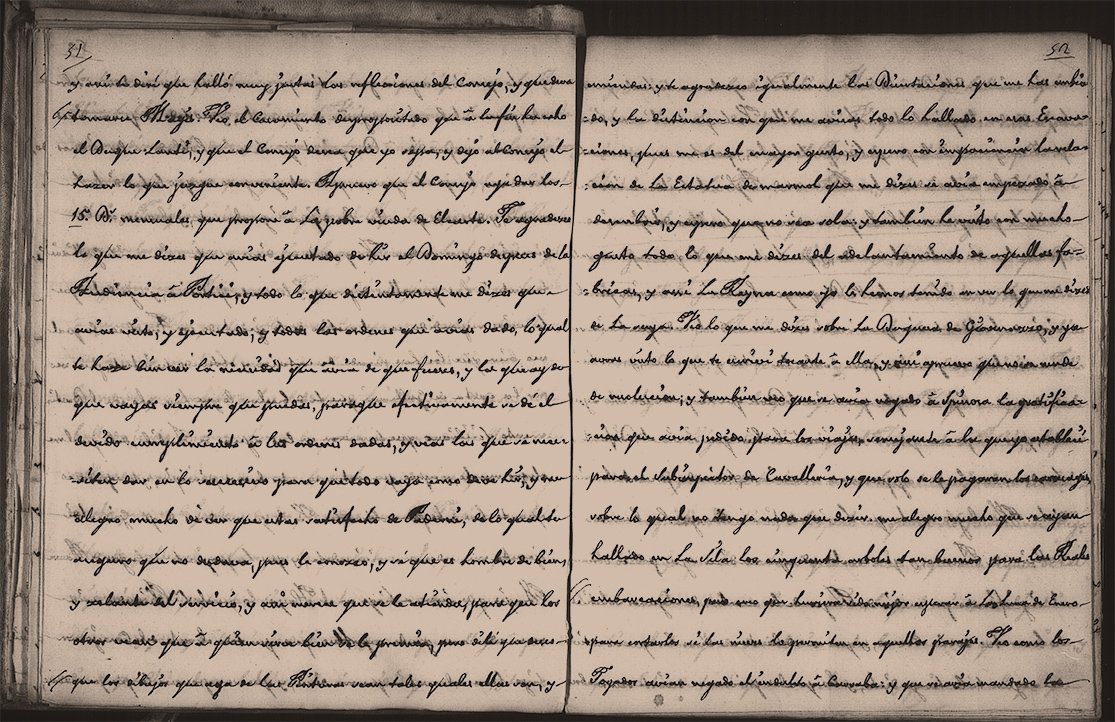 51
y assi te diré que hallo muy justas las reflexiones del Consejo, y que deva
tomarse Veo el Casamiento despropositado que à hecho
el Duque Lanti, y que el Consejo deva que yo sepa, y dejo al Consejo el
hazer lo que juzgue conveniente. Apruevo que el Consejo aga dar los
15. D.s mensuales que propone à la pobre viuda de Te agradezco
lo que me dizes que avias executado de hir el Domingo despues de la
Audiencia à Portici, y todo lo que distintamente me dizes que
avias visto, y executado, y todas las ordenes que avias dado, lo qual
te haze bien ver la necesidad que avia de que fueses, y la que ay de
que vayas siempre que puedas, paraque efectivamente se dé el
devido cumplimiento à las ordenes dadas, y veas las que se nece-
sitan dar en lo succesivo para que todo vaya como deve hir, y me
allegro mucho de ver que estas satisfecho de Paderni, de lo qual te
aseguro que no dudava, pues le conozco, y sé que es hombre de bien,
y zelante del servicio, y assi merece que se le atienda, para que los
otros vean que à quien sirve bien se le premia, pero dile que
que los dibujos que aga de las Pinturas sean tales quales ellas son, y
52
y te agradezco igualmente las que me has embia-
do, y la distincion con que me avisas todo lo hallado en esas Escava-
ciones, pues me es del mayor gusto, y espero con impaciencia la rela-
cion de la Estatua de marmol que me dizes se avia empezado à
descubrir, y espero que no sea sola: y tambien he visto con mucho
gusto todo lo que me dizes del adelantamiento de aquellas fa-
bricas, y assi la Reyna como yo la hemos tenido en ver lo que me dizes
de la suya. Veo lo que me dizes sobre la Duquesa de y ya
avras visto lo que te escriví tocante à ella, y assi apruevo que no se mude
de resolucion; y tambien veo que se avia negado à Spinosa la gratifica-
cion que avia pedido para los viajes, semejante à la que yo establecí
para el Subinspector de Cavalleria, y que solo se le pagaran los carruages,
sobre lo qual no tengo nada que dezir. me alegro mucho que se ayan
hallado en La Sila los cinquenta arboles tan buenos para las Reales
embarcaciones, pero creo que huviera sido mejor esperar à la Luna de Enero
para cortarlos si las nieves lo permiten en aquellos parajes. Veo como los
Togados avian negado el indulto à y que se avia mandado los